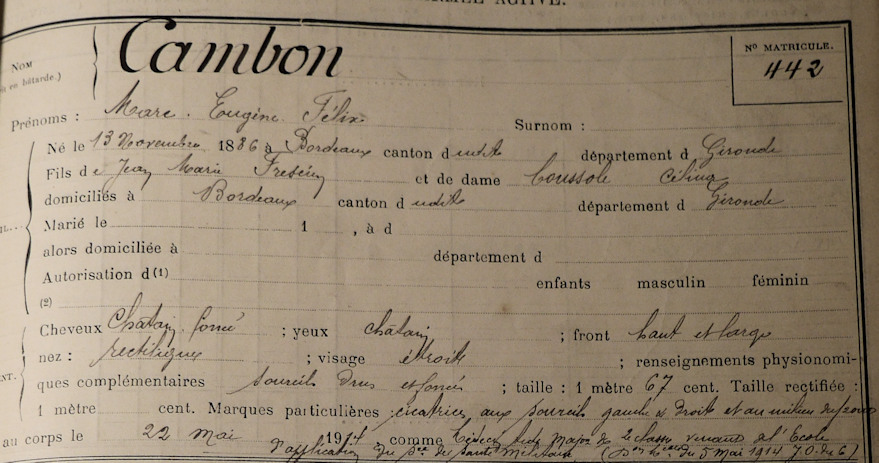 NOM
Cambon
N° MATRICULE.
442
Prénoms : Marc . Eugène . Félix
Surnom :
Né le 13 Novembre 1886 à Bordeaux canton dudit département d Gironde
Fils de Jean Marie et de dame Coussole Célina
domiciliés à Bordeaux canton dudit département d Gironde
Marié le 1 , à d
alors domiciliée à département d
Autorisation d (1) enfants masculin féminin
(2)
Cheveux Châtain foncé ; yeux châtain ; front haut et large
nez : rectiligne ; visage étroit ; renseignements physionomi-
ques complémentaires sourcils drus et foncés ; taille : 1 mètre 67 cent. Taille rectifiée :
1 mètre cent. Marques particulières : cicatrices aux sourcils gauche & droit et au milieu du
au corps le 22 mai 1914 comme Médecin aide major de 2e classe venant de l'Ecole
d'application du Sce de Santé Militaire ( du 5 Mai 1914 J.O. du 6)